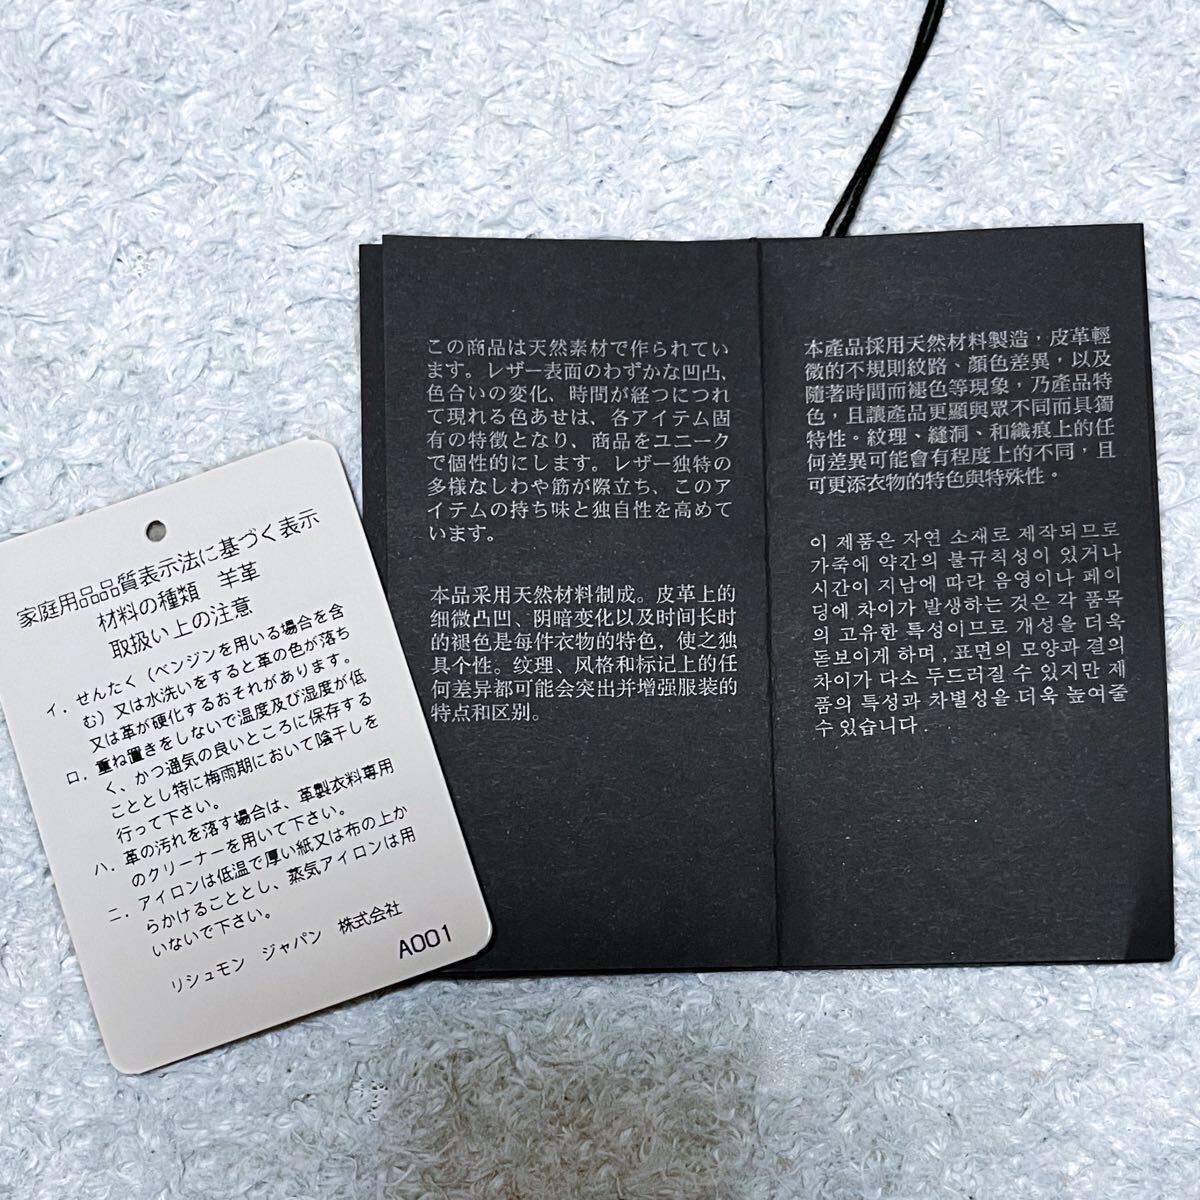 家庭用品品質表示法に基づく表示
材料の種類 羊革
取扱い上の注意
イ．せんたく（ベンジンを用いる場合を含
む）又は水洗いをすると革の色が落ち
又は革が硬化するおそれがあります。
ロ．重ね置きをしないで温度及び湿度が低
く、かつ通気の良いところに保存する
こととし特に梅雨期において陰干しを
行って下さい。
ハ．革の汚れを落す場合は、革製衣料専用
のクリーナーを用いて下さい。
ニ．アイロンは低温で厚い紙又は布の上か
らかけることとし、蒸気アイロンは用
いないで下さい。
リシュモン ジャパン 株式会社
A001
この商品は天然素材で作られてい
ます。レザー表面のわずかな凹凸、
色合いの変化、時間が経つにつれ
て現れる色あせは、各アイテム固
有の特徴となり、商品をユニーク
で個性的にします。レザー独特の
多様なしわや筋が際立ち、このア
イテムの持ち味と独自性を高めて
います。
本品采用天然材料制成。皮革上的
细微凸凹、阴暗变化以及时间长时
的褪色是每件衣物的特色，使之独
具个性。纹理、风格和标记上的任
何差异都可能会突出并增强服装的
特点和区别。
本產品採用天然材料製造，皮革輕
微的不規則紋路、顏色差異，以及
隨著時間而褪色等現象，乃產品特
色，且讓產品更顯與眾不同而具獨
特性。紋理、縫洞、和織痕上的任
何差異可能會有程度上的不同，且
可更添衣物的特色與特殊性。
이 제품은 자연 소재로 제작되므로
가죽에 약간의 불규칙성이 있거나
시간이 지남에 따라 음영이나 페이
딩에 차이가 발생하는 것은 각 품목
의 고유한 특성이므로 개성을 더욱
돋보이게 하며, 표면의 모양과 결의
차이가 다소 두드러질 수 있지만 제
품의 특성과 차별성을 더욱 높여줄
수 있습니다.